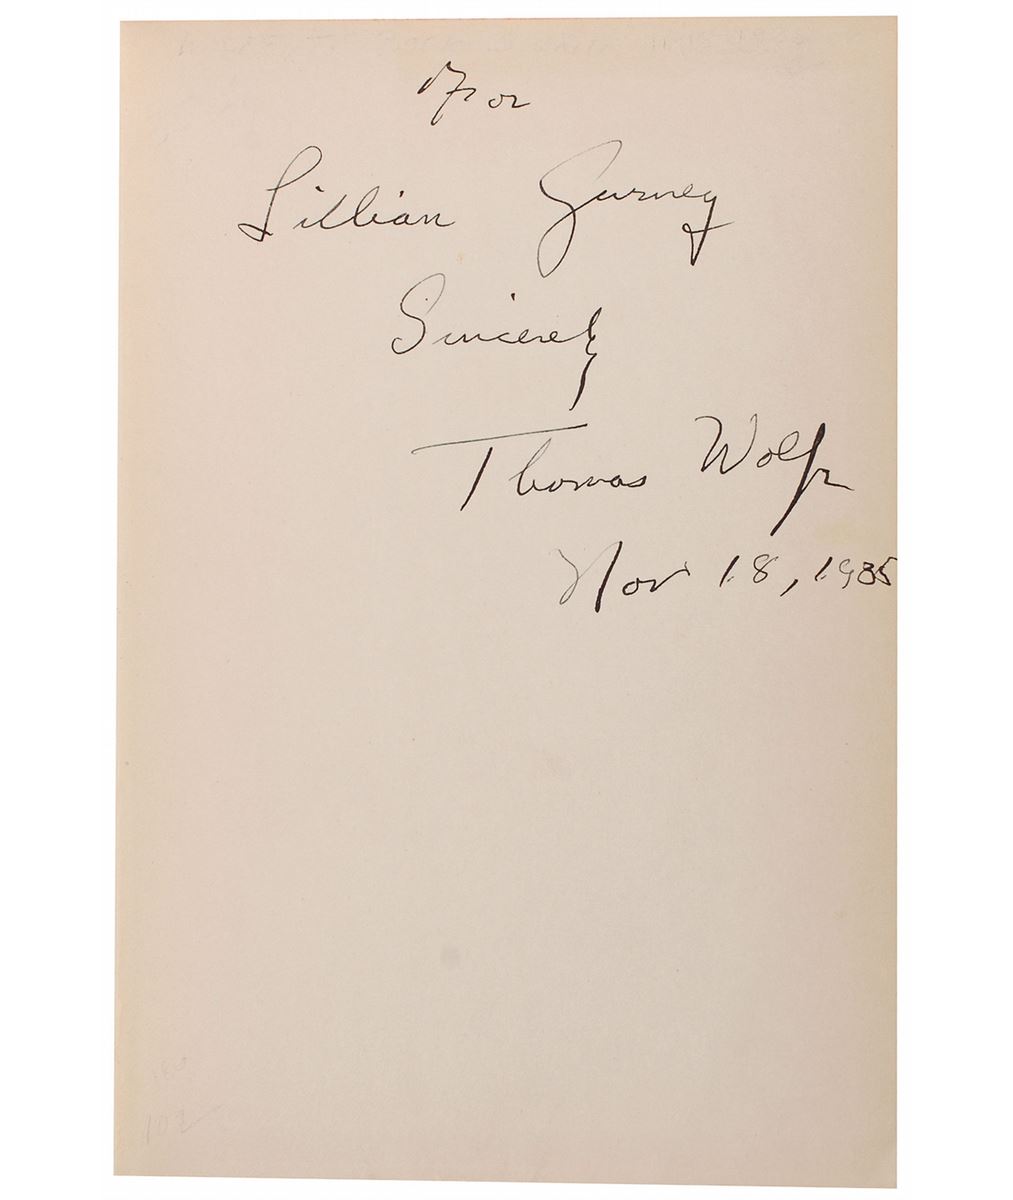 For
Lillian Gurney
Sincerely
Thomas Wolfe
Nov 18, 1935